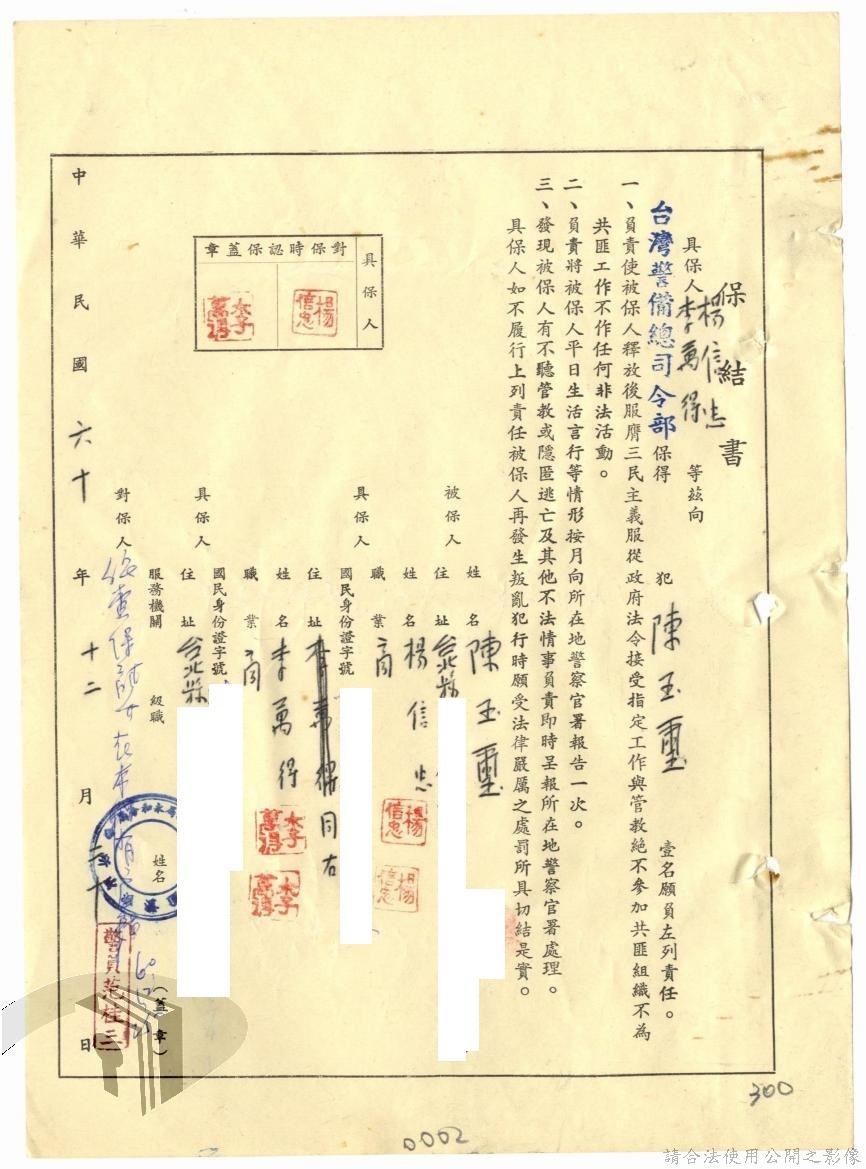 保結書
具保人 楊信忠 李萬得 等茲向
台灣警備總司令部保得 犯 陳玉璽 壹名願負左列責任。
一、負責使被保人釋放後服膺三民主義服從政府法令接受指定工作與管教絕不參加共匪組織不為
共匪工作不作任何非法活動。
二、負責將被保人平日生活言行等情形按月向所在地警察官署報告一次。
三、發現被保人有不聽管教或隱匿逃亡及其他不法情事負責即時呈報所在地警察官署處理。
具保人如不履行上列責任被保人再發生叛亂犯行時願受法律嚴厲之處罰所具切結是實。
被保人 姓名 陳玉璽
住址 台北縣
具保人 姓名 楊信忠
職業 商
國民身份證字號
住址 同右
具保人 姓名 李萬得
職業 商
國民身份證字號
住址 台北縣
對保人 服務機關 級職 姓名 (蓋章)
具保人
對保時認保蓋章
楊信忠
李萬得
警員范桂三
中華民國六十年十二月 日
300
0002
請合法使用公開之影像